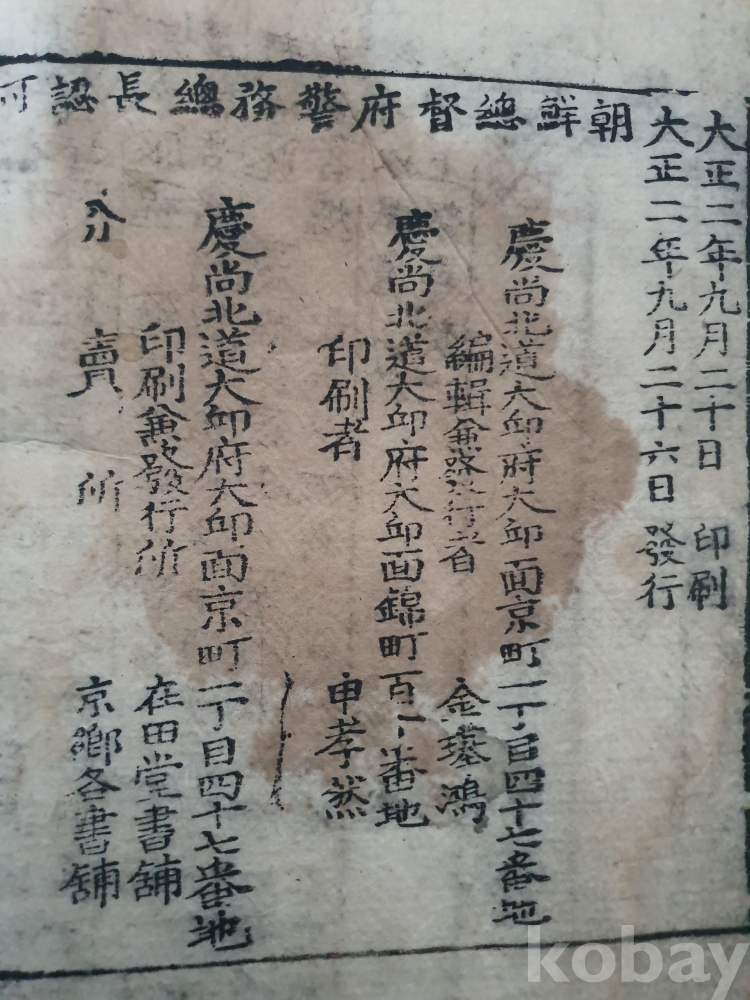 朝鮮總督府警務總長認可
大正二年九月二十日 印刷
大正二年九月二十六日 發行
慶尚北道大邱府大邱面京町一丁目四十七番地
編輯兼發行者 金璂鴻
慶尚北道大邱府大邱面錦町百一番地
印刷者 申孝然
慶尚北道大邱府大邱面京町一丁目四十七番地
印刷兼發行所 在田堂書舖
分賣所 京鄉各書舖
kobay